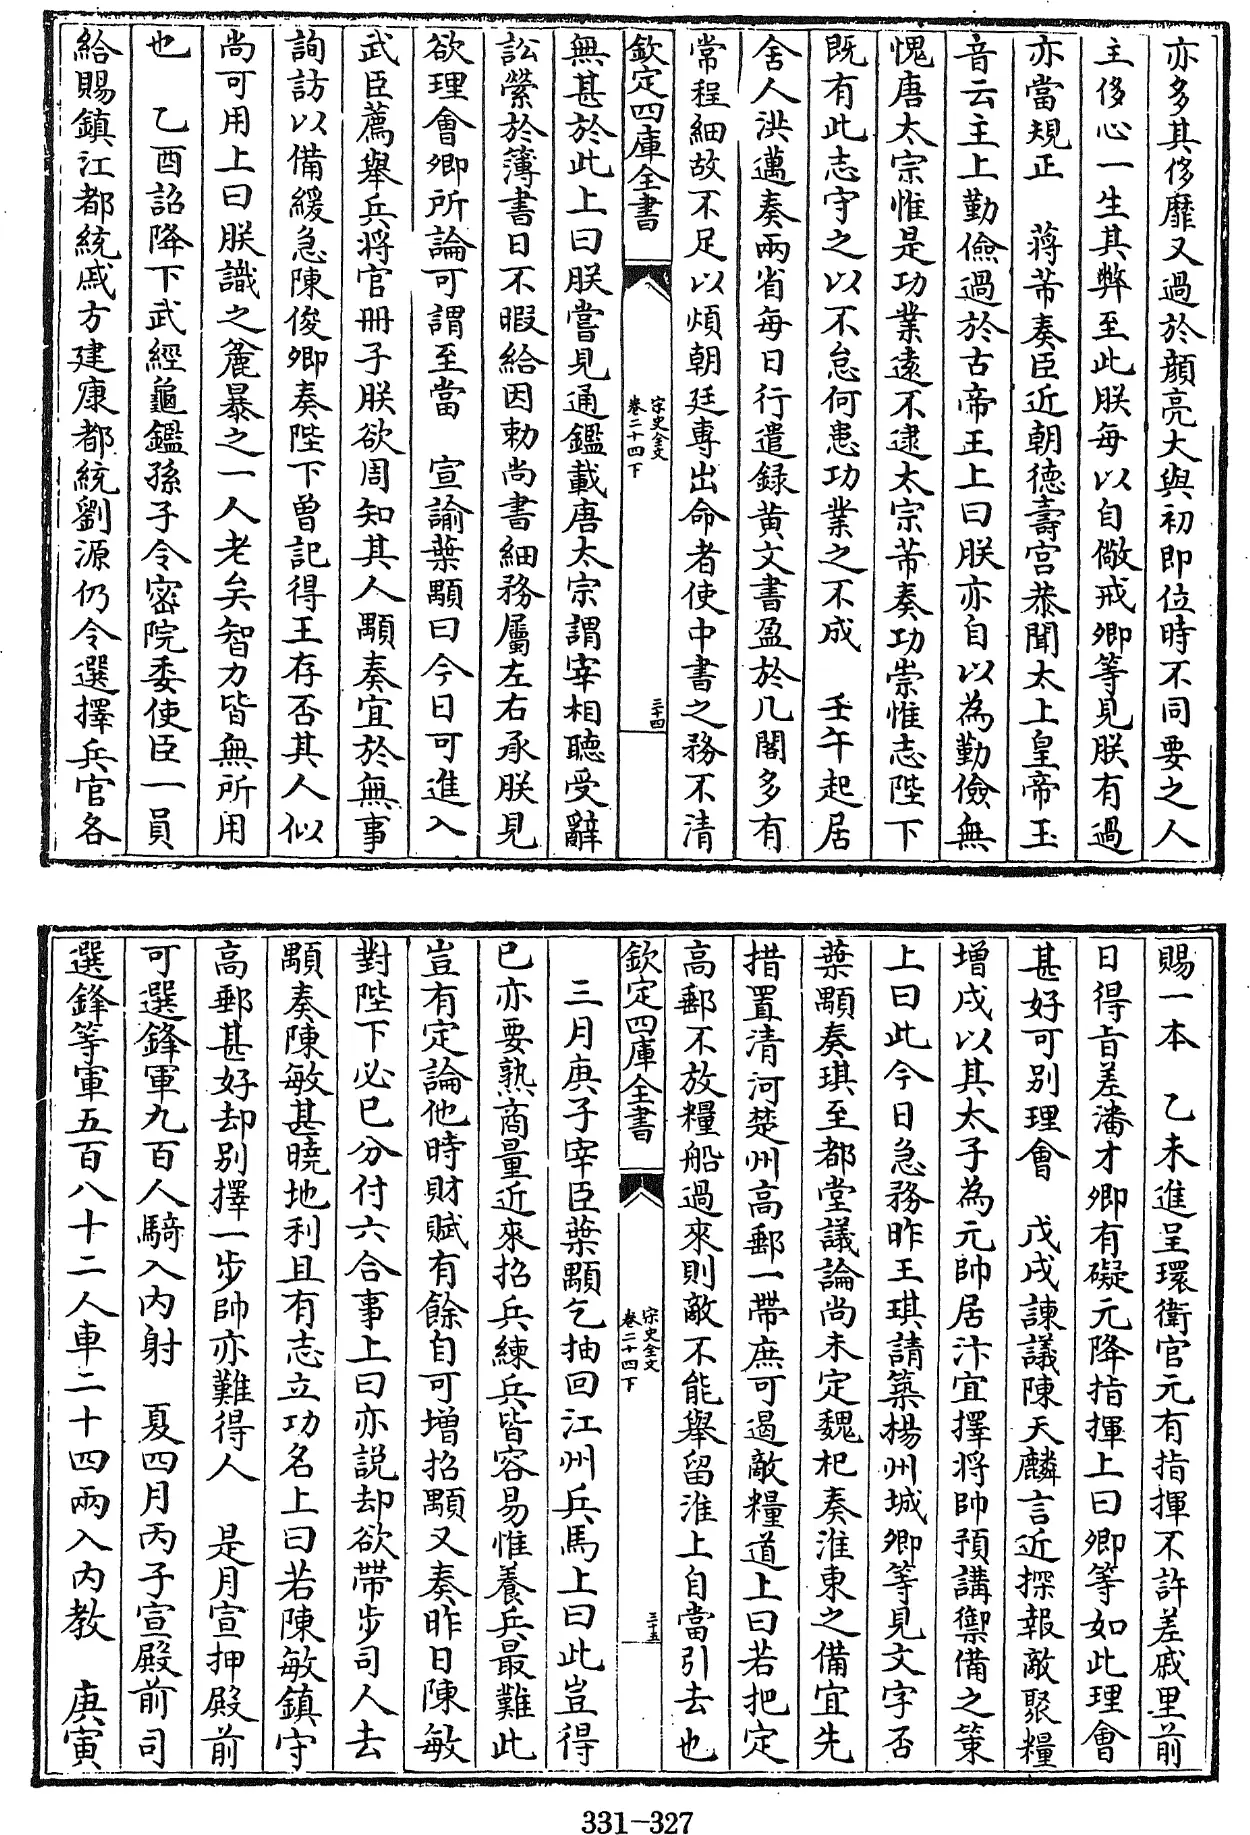 亦多其侈靡又過於顔亮大與初即位時不同要之人
主侈心一生其弊至此朕每以自儆戒卿等見朕有過
亦當規正　蔣芾奏臣近朝德壽宮恭聞太上皇帝玉
音云主上勤儉過於古帝王上曰朕亦自以為勤儉無
愧唐太宗惟是功業遠不逮太宗芾奏功崇惟志陛下
既有此志守之以不怠何患功業之不成　壬午起居
舍人洪邁奏兩省每日行遣録黄文書盈於几閣多有
常程細故不足以煩朝廷專出命者使中書之務不清
欽定四庫全書
宋史全文
卷二十四下
三十四
無甚於此上曰朕嘗見通鑑載唐太宗謂宰相聽受辭
訟縈於簿書日不暇給因勅尚書細務屬左右丞朕見
欲理會卿所論可謂至當　宣諭葉顒曰今日可進入
武臣薦舉兵將官冊子朕欲周知其人顒奏宜於無事
詢訪以備緩急陳俊卿奏陛下曾記得王存否其人似
尚可用上曰朕識之麄暴之一人老矣智力皆無所用
也　乙酉詔降下武經龜鑑孫子令密院委使臣一員
給賜鎮江都統戚方建康都統劉源仍令選擇兵官各
賜一本　乙未進呈環衛官元有指揮不許差戚里前
日得旨差潘才卿有礙元降指揮上曰卿等如此理會
甚好可别理會　戊戌諫議陳天麟言近探報敵聚糧
增戍以其太子為元帥居汴宜擇將帥預講禦備之策
上曰此今日急務昨王琪請築楊州城卿等見文字否
葉顒奏琪至都堂議論尚未定魏杞奏淮東之備宜先
措置清河楚州高郵一帶庶可遏敵糧道上曰若把定
高郵不放糧船過來則敵不能舉留淮上自當引去也
欽定四庫全書
宋史全文
卷二十四下
三十五
三月庚子宰臣葉顒乞抽回江州兵馬上曰此豈得
已亦要熟商量近來招兵練兵皆容易惟養兵最難此
豈有定論他時財賦有餘自可增招顒又奏昨日陳敏
對陛下必已分付六合事上曰亦説却欲帶步司人去
顒奏陳敏甚曉地利且有志立功名上曰若陳敏鎮守
高郵甚好却别擇一步帥亦難得人　是月宣押殿前
可選鋒軍九百人騎入内射　夏四月丙子宣殿前司
選鋒等軍五百八十二人車二十四兩入内教　庚寅
331-327